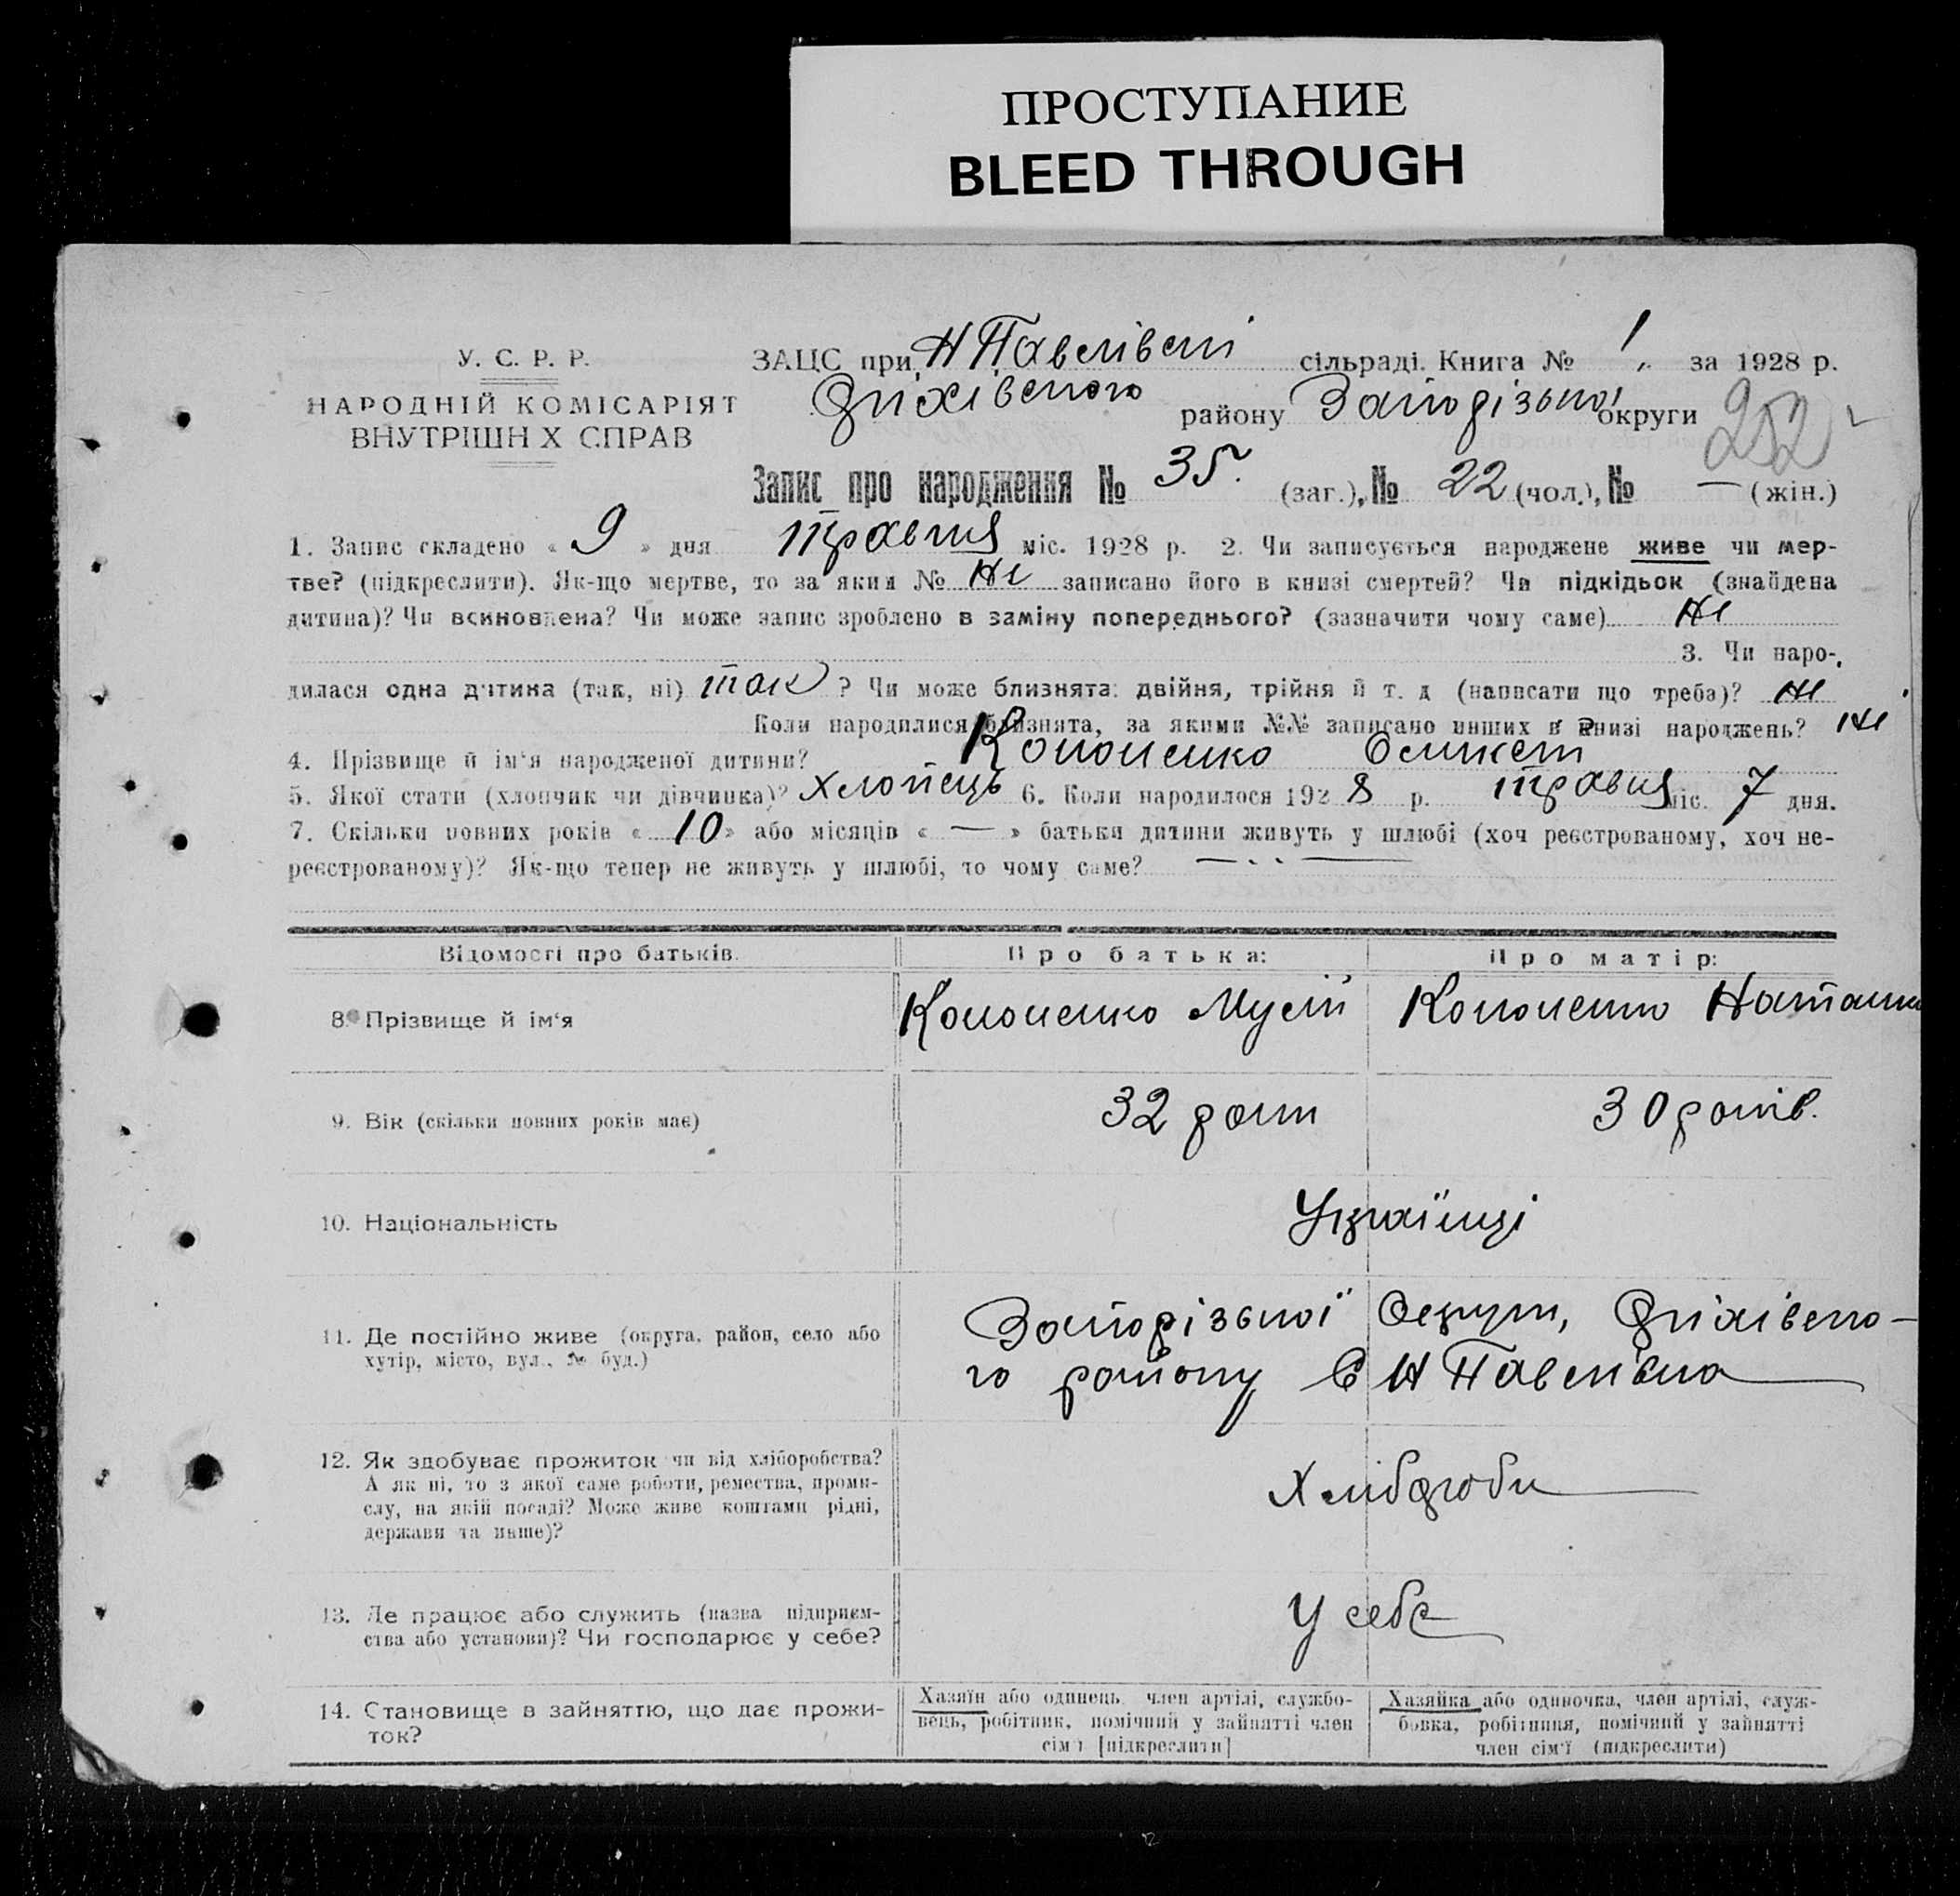 ПРОСТУПАНИЕ
BLEED THROUGH
У. С. Р. Р.
НАРОДНІЙ КОМІСАРІЯТ
ВНУТРІШН Х СПРАВ
ЗАЦС при Н Павлівскі сільраді. Книга № 1. за 1928 р.
Оріхівського району Запорізької округи 252
Запис про народження № 35. (заг.), № 22 (чол.), № — (жін.)
1. Запис складено « 9 » дня травня міс. 1928 р. 2. Чи записується народжене живе чи мер-
тве? (підкреслити). Як-що мертве, то за яким № Ні записано його в книзі смертей? Чи підкідьок (знайдена
дитина)? Чи всиновлена? Чи може запис зроблено в заміну попереднього? (зазначити чому саме) Ні
3. Чи наро-
дилася одна дитина (так, ні) так ? Чи може близнята: двійня, трійня й т. д (написати що треба)? Ні
Коли народилися близнята, за якими №№ записано инших в книзі народжень? Ні
4. Прізвище й ім'я народженої дитини? Кононенко
5. Якої стати (хлопчик чи дівчинка)? Хлопець 6. Коли народилося 1928 р. травня міс. 7 дня.
7. Скільки повних років « 10 » або місяців « — » батьки дитини живуть у шлюбі (хоч реєстрованому, хоч не-
реєстрованому)? Як-що тепер не живуть у шлюбі, то чому саме?
Відомості про батьків. Про батька: Про матір:
8. Прізвище й ім'я Кононенко Мусій Кононенко Наташка
9. Вік (скільки повних років має) 32 роки 30 років.
10. Національність Українці
11. Де постійно живе (округа, район, село або
хутір, місто, вул., № буд.)
Запорізької Округи, Оріхівсько-
го району С Н Павлівка
12. Як здобуває прожиток чи від хліборобства?
А як ні, то з якої саме роботи, ремества, проми-
слу, на якій посаді? Може живе коштами рідні,
держави та инше)?
Хлібороби
13. Де працює або служить (назва підприєм-
ства або установи)? Чи господарює у себе?
У себе
14. Становище в зайняттю, що дає прожи-
ток?
Хазяїн або одинець член артілі, службо-
вець, робітник, помічний у зайнятті член
сім'ї [підкреслити]
Хазяйка або одиночка, член артілі, служ-
бовка, робітниця, помічний у зайнятті
член сім'ї (підкреслити)